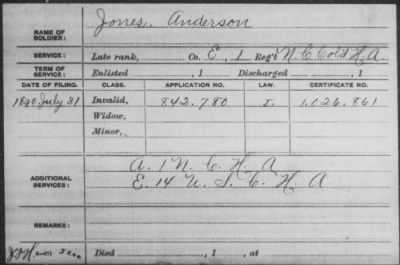 Jones, Anderson
NAME OF SOLDIER:
SERVICE: Late rank, Co. E, 1 Reg't N.C. Cold H.A.
TERM OF SERVICE: Enlisted , 1 Discharged , 1
DATE OF FILING. CLASS. APPLICATION NO. LAW. CERTIFICATE NO.
1890 July 31 Invalid, 842,780 J. 1,026,861
Widow,
Minor,
A. 1 N. C. H. A
ADDITIONAL SERVICES: E. 14 U. S. C. H. A
REMARKS:
Died , 1 , at